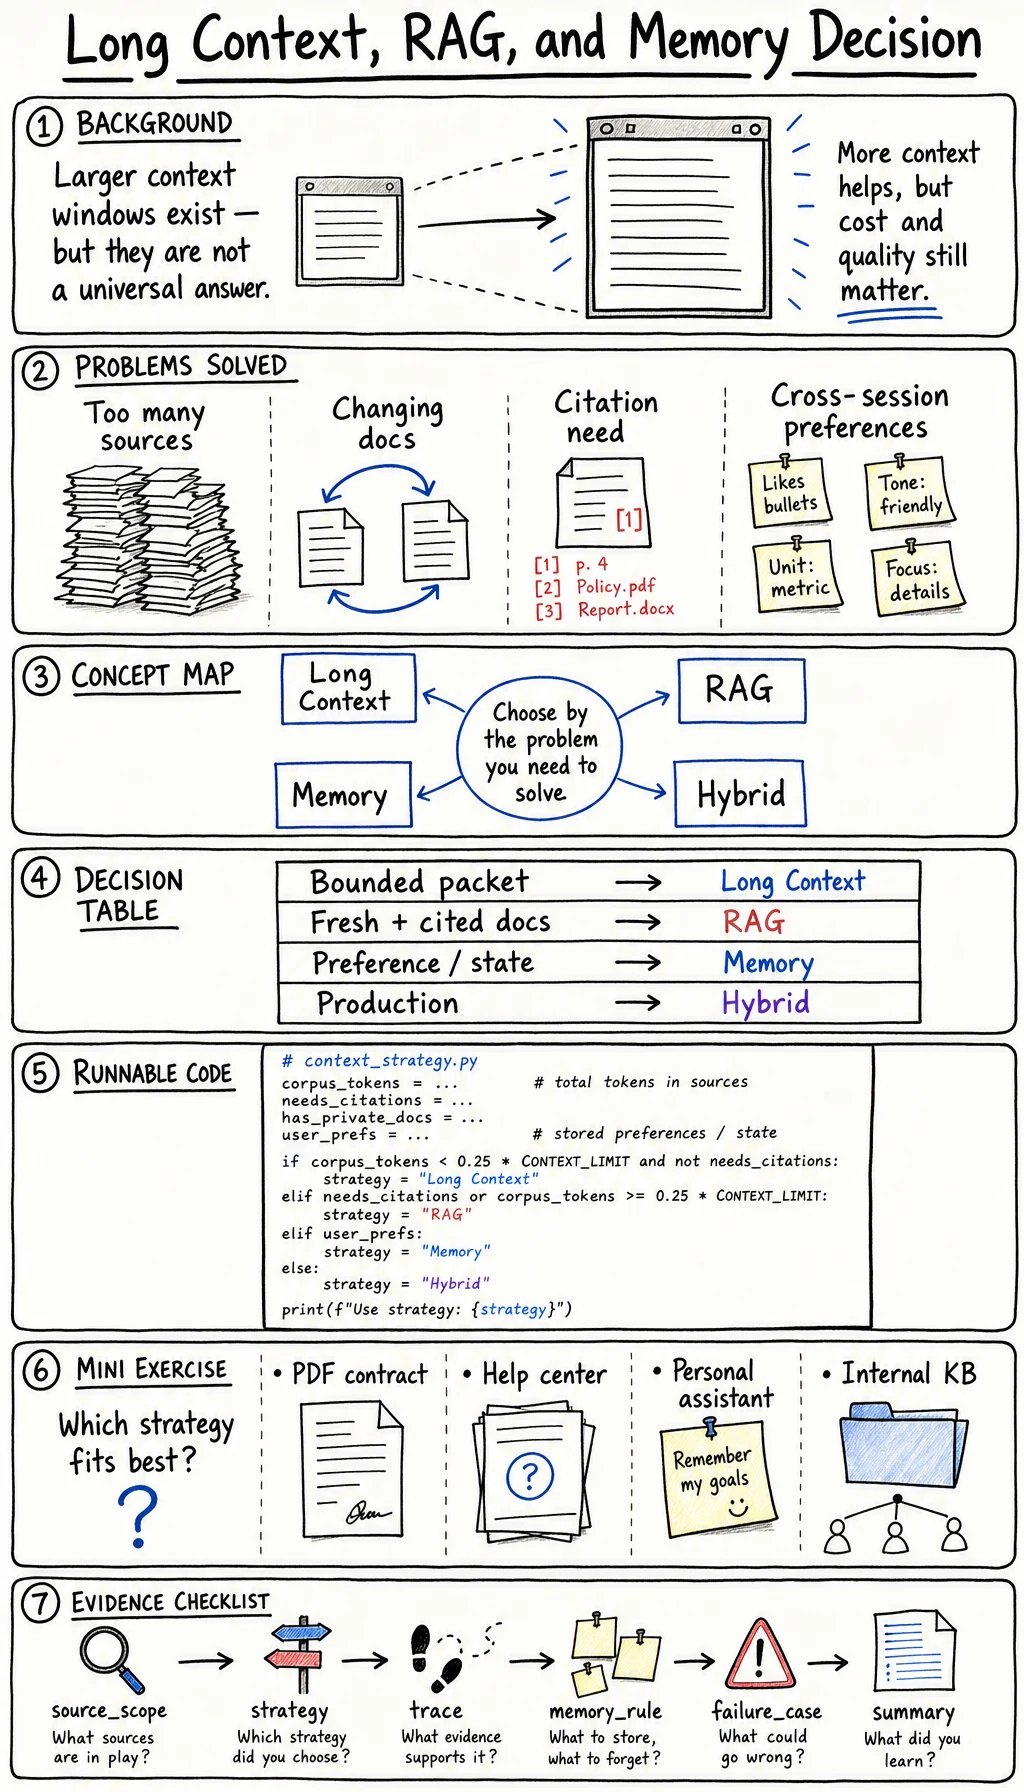 Long Context, RAG, and Memory Decision
1 BACKGROUND
Larger context
windows exist —
but they are not
a universal answer.
More context
helps, but
cost and
quality still
matter.
2 PROBLEMS SOLVED
Too many
sources
Changing
docs
Citation
need
[1]
[1] p. 4
[2] Policy.pdf
[3] Report.docx
Cross-session
preferences
Likes
bullets
Tone:
friendly
Unit:
metric
Focus:
details
3 CONCEPT MAP
Long
Context
RAG
Choose by
the problem
you need to
solve
Memory
Hybrid
4 DECISION
TABLE
Bounded packet → Long Context
Fresh + cited docs → RAG
Preference / state → Memory
Production → Hybrid
5 RUNNABLE CODE
# context_strategy.py
corpus_tokens = ... # total tokens in sources
needs_citations = ...
has_private_docs = ...
user_prefs = ... # stored preferences / state
if corpus_tokens < 0.25 * CONTEXT_LIMIT and not needs_citations:
strategy = "Long Context"
elif needs_citations or corpus_tokens >= 0.25 * CONTEXT_LIMIT:
strategy = "RAG"
elif user_prefs:
strategy = "Memory"
else:
strategy = "Hybrid"
print(f"Use strategy: {strategy}")
6 MINI EXERCISE
Which strategy
fits best?
?
• PDF contract
• Help center
?
• Personal
assistant
Remember
my goals
• Internal KB
7 EVIDENCE CHECKLIST
source_scope
What sources
are in play?
strategy
Which strategy
did you choose?
trace
What evidence
supports it?
memory_rule
What to store,
what to forget?
!
failure_case
What could
go wrong?
summary
What did you
learn?